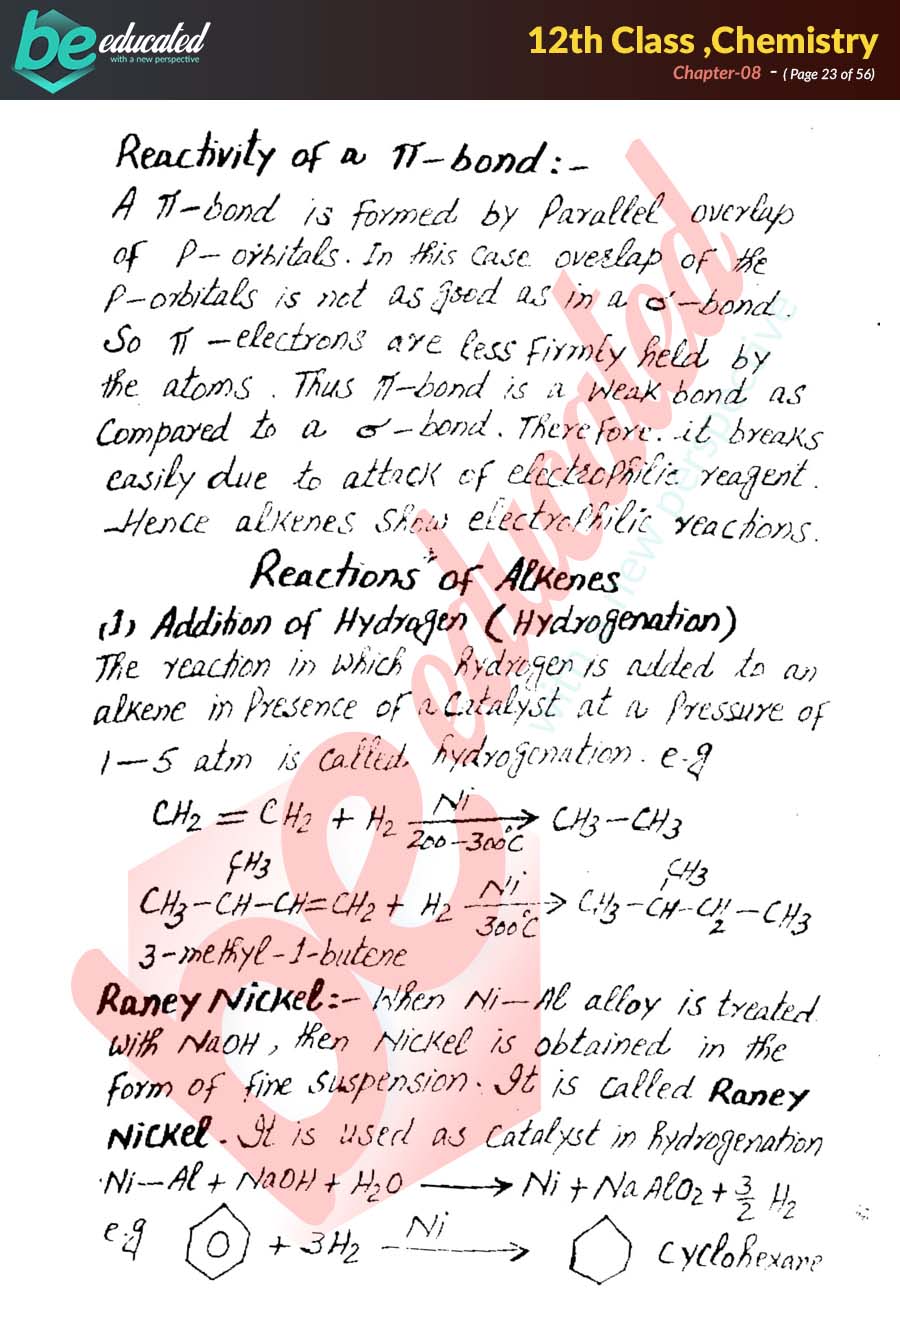 be educated
with a new perspective
12th Class ,Chemistry
Chapter-08 - ( Page 23 of 56)
Reactivity of a π-bond:-
A π-bond is formed by Parallel overlap
of P-orbitals. In this case overlap of the
P-orbitals is not as good as in a σ-bond.
So π-electrons are less firmly held by
the atoms. Thus π-bond is a weak bond as
Compared to a σ-bond. Therefore. it breaks
easily due to attack of electrophilic reagent.
Hence alkenes show electrophilic reactions.
Reactions of Alkenes
(1) Addition of Hydragen (Hydrogenation)
The reaction in which hydrogen is added to an
alkene in Presence of a Catalyst at a Pressure of
1-5 atm is called hydrogenation. e.g
CH2 = CH2 + H2 Ni 200-300°C → CH3-CH3
CH3 CH3
CH3-CH-CH=CH2 + H2 Ni 300°C → CH3-CH-CH2-CH3
3-methyl-1-butene
Raney Nickel:- When Ni-Al alloy is treated
with NaOH, then Nickel is obtained in the
form of fine suspension. It is called Raney
Nickel. It is used as catalyst in hydrogenation
Ni-Al + NaOH + H2O → Ni + NaAlO2 + 3/2 H2
e.g + 3H2 Ni → cyclohexane
be educated
with new perspective